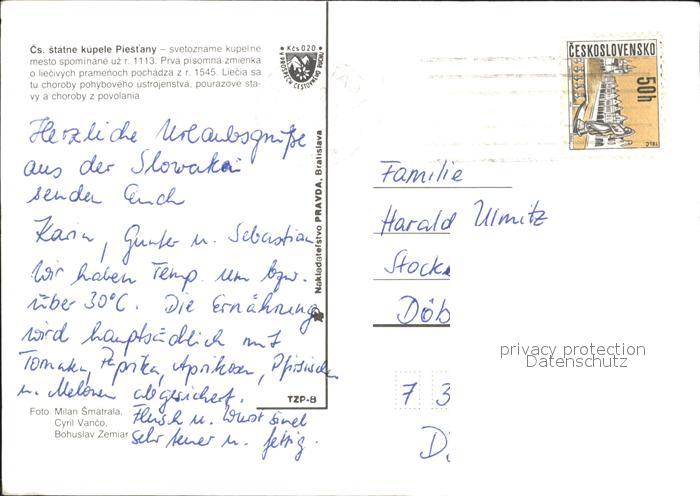 Čs. štátne kúpele Piešťany – svetoznáme kúpeľné
mesto spomínané už r. 1113. Prvá písomná zmienka
o liečivých prameňoch pochádza z r. 1545. Liečia sa
tu choroby pohybového ústrojenstva, poúrazové sta-
vy a choroby z povolania
Kčs 0,20
ČESKOSLOVENSKO
50h
TELČ
Herzliche Urlaubsgrüße
aus der Slowakei
senden Euch
Karin, Gunter u. Sebastian
Wir haben Temp. um bzw.
über 30°C. Die Ernährung
wird hauptsächlich mit
Tomaten, Paprika, Aprikosen, Pfirsichen
u. Melonen abgesichert.
Fleisch u. Wurst sind
sehr teuer u. fettig.
Foto Milan Šmatrala,
Cyril Vančo,
Bohuslav Zemiar
Nakladateľstvo PRAVDA, Bratislava
TZP-8
Familie
Harald Ulmitz
Stock
Döb
7 3
D
privacy protection
Datenschutz